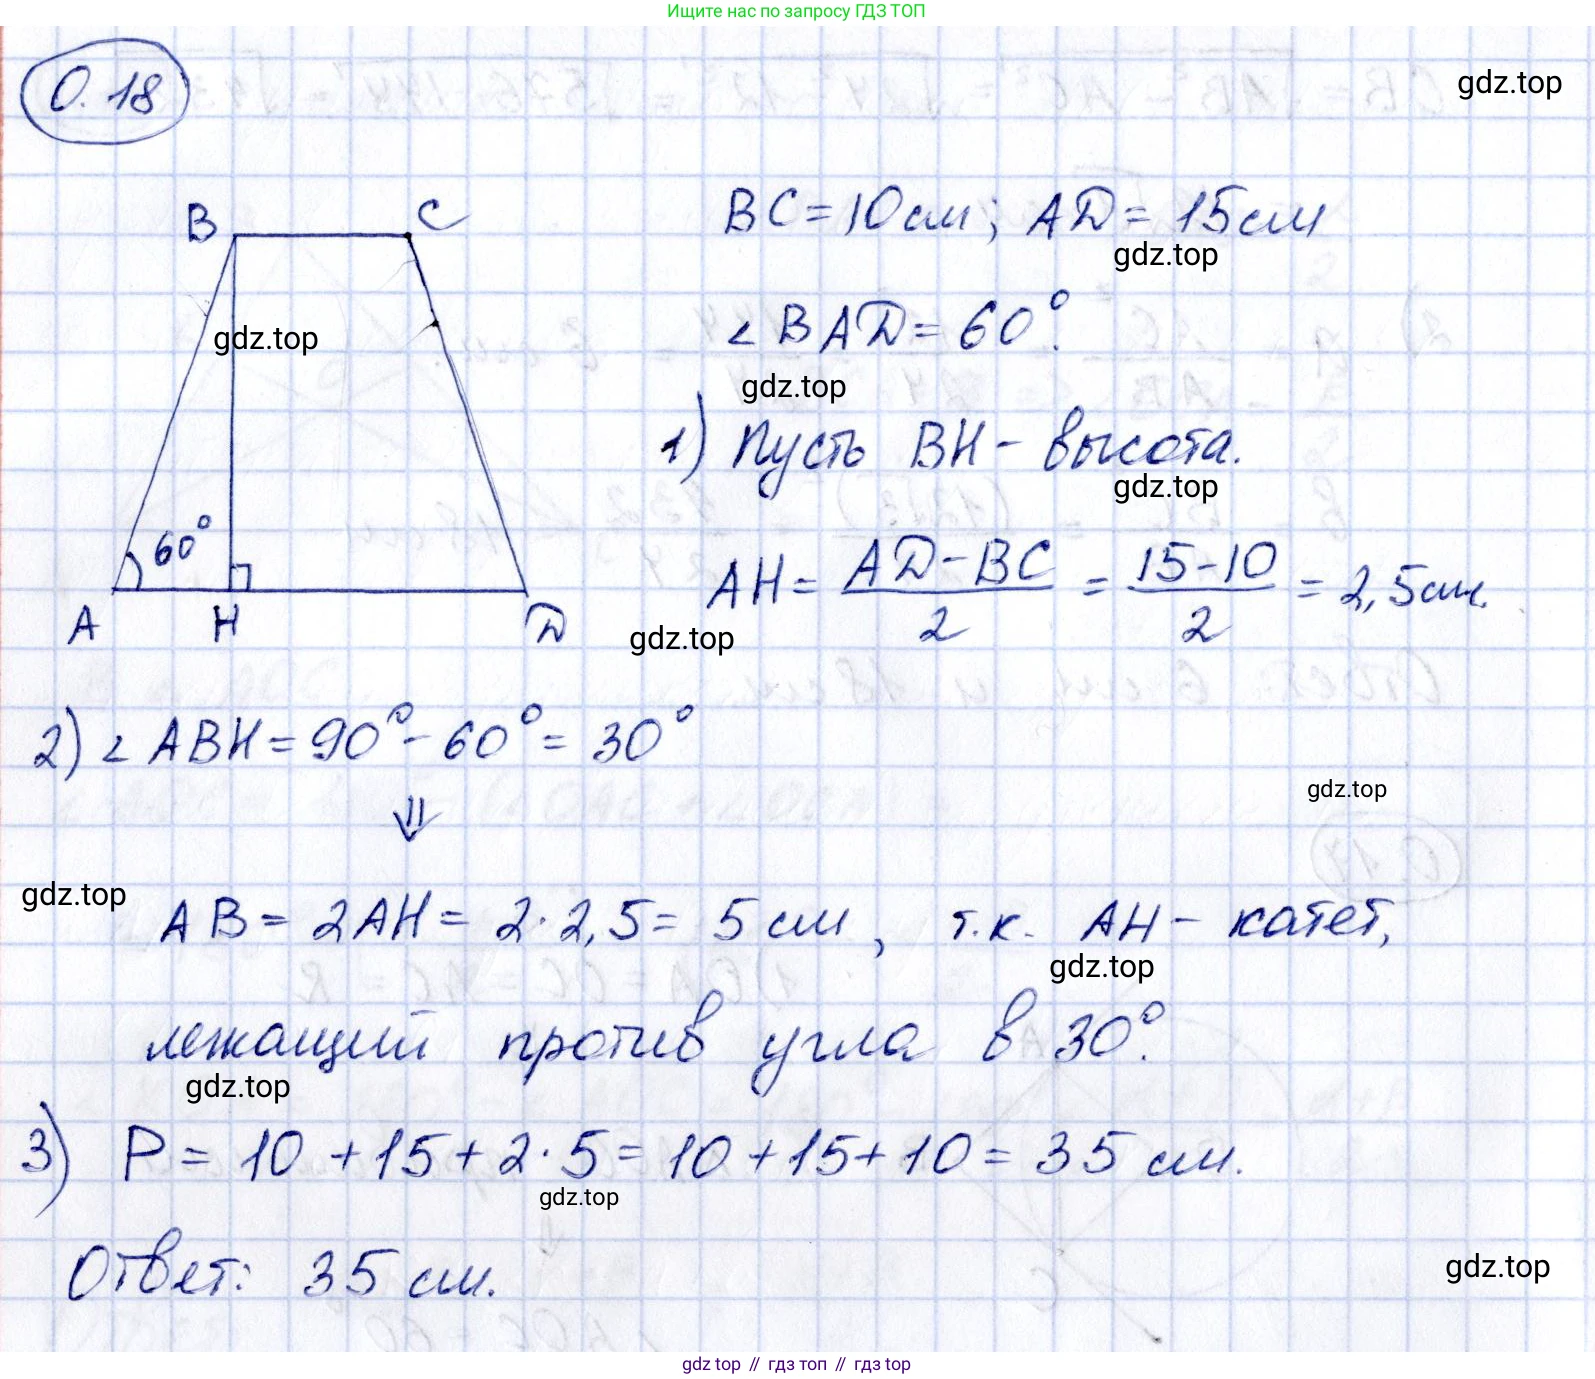 Ищите нас по запросу ГДЗ ТОП
0.18
gdz.top
B C
BC = 10 см; AD = 15 см
gdz.top
gdz.top
∠ BAD = 60°.
gdz.top
1) Пусть BH - высота.
gdz.top
60°
AH = \frac{AD - BC}{2} = \frac{15 - 10}{2} = 2,5 см.
A H D
gdz.top
2) ∠ ABH = 90° - 60° = 30°
gdz.top
⇓
gdz.top
AB = 2AH = 2 · 2,5 = 5 см, т.к. AH - катет,
gdz.top
лежащий против угла в 30°.
gdz.top
3) P = 10 + 15 + 2 · 5 = 10 + 15 + 10 = 35 см.
gdz.top
Ответ: 35 см.
gdz.top
gdz top // гдз топ // гдз top